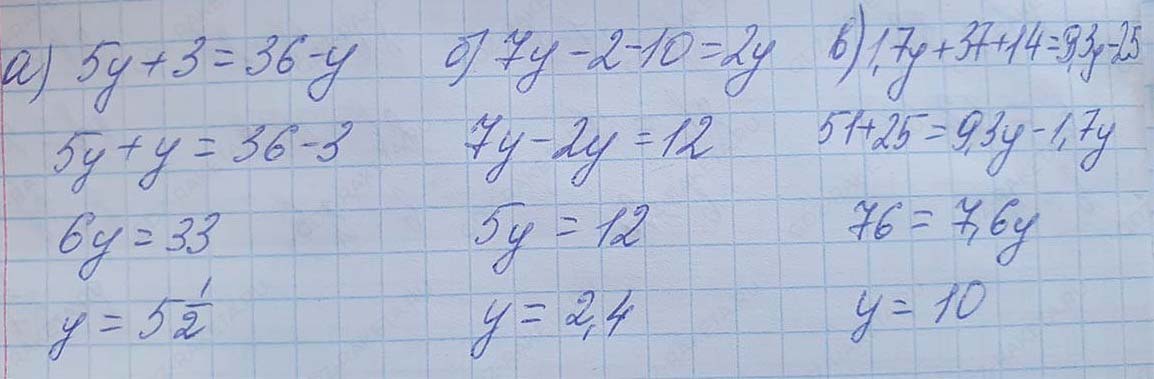 а) 5y + 3 = 36 - y
5y + y = 36 - 3
6y = 33
y = 5 1/2
б) 7y - 2 - 10 = 2y
7y - 2y = 12
5y = 12
y = 2,4
в) 1,7y + 37 + 14 = 9,3y - 25
51 + 25 = 9,3y - 1,7y
76 = 7,6y
y = 10